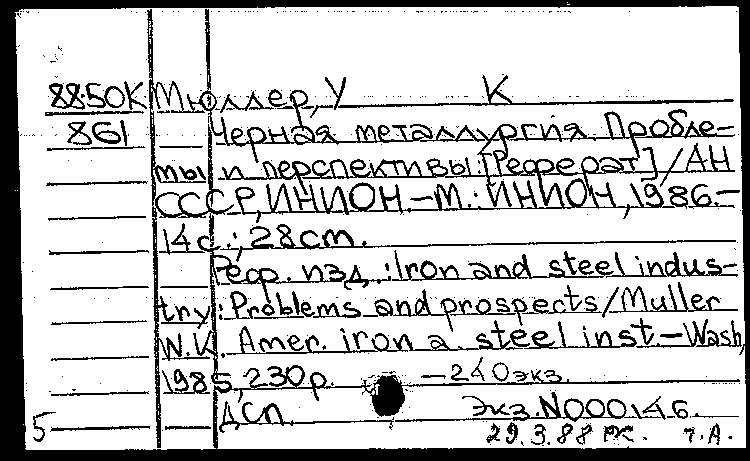 88-50К Мюллер, У К
861 Черная металлургия. Пробле-
мы и перспективы: [Реферат] / АН
СССР, ИНИОН.—М.: ИНИОН, 1986.—
14 с.; 28 cm.
Реф. изд.: Iron and steel indus-
try: Problems and prospects / Muller
W.K. Amer. iron a. steel inst.—Wash,
1985, 230 p. —240 экз.
ДСП. Экз. N000146.
5 29.3.88 т.А.